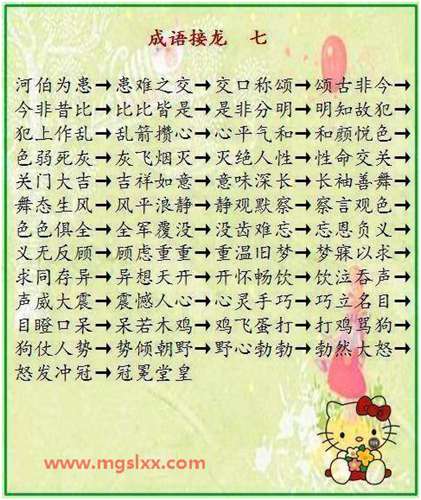 成语接龙 七
河伯为患→患难之交→交口称颂→颂古非今→
今非昔比→比比皆是→是非分明→明知故犯→
犯上作乱→乱箭攒心→心平气和→和颜悦色→
色弱死灰→灰飞烟灭→灭绝人性→性命交关→
关门大吉→吉祥如意→意味深长→长袖善舞→
舞态生风→风平浪静→静观默察→察言观色→
色色俱全→全军覆没→没齿难忘→忘恩负义→
义无反顾→顾虑重重→重温旧梦→梦寐以求→
求同存异→异想天开→开怀畅饮→饮泣吞声→
声威大震→震憾人心→心灵手巧→巧立名目→
目瞪口呆→呆若木鸡→鸡飞蛋打→打鸡骂狗→
狗仗人势→势倾朝野→野心勃勃→勃然大怒→
怒发冲冠→冠冕堂皇
www.mgslxx.com